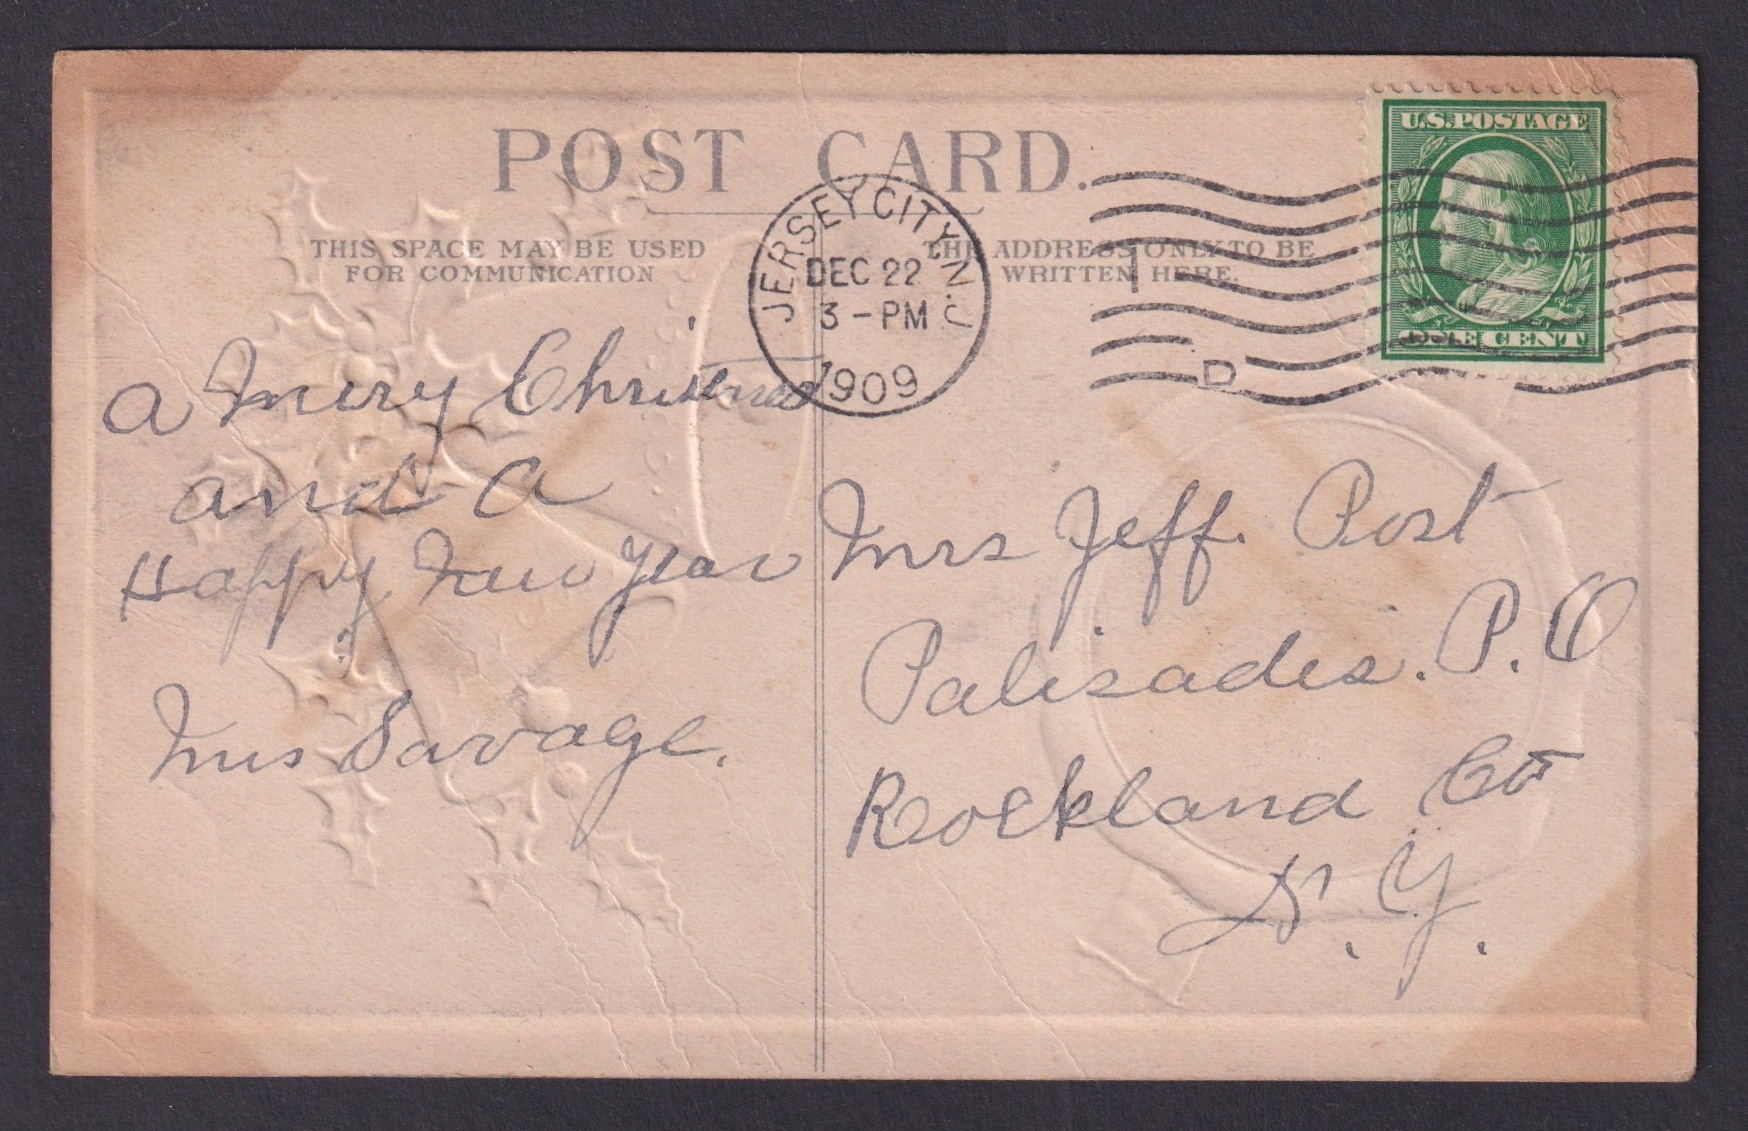 POST CARD.
THIS SPACE MAY BE USED
FOR COMMUNICATION
THE ADDRESS ONLY TO BE
WRITTEN HERE.
JERSEY CITY, N.J.
DEC 22
3 - PM
1909
I
D
U.S.POSTAGE
ONE CENT
a Merry Christmas
and a
Happy New Year
Mrs Savage.
Mrs Jeff. Post
Palisades. P. O
Rockland Co
N. Y.